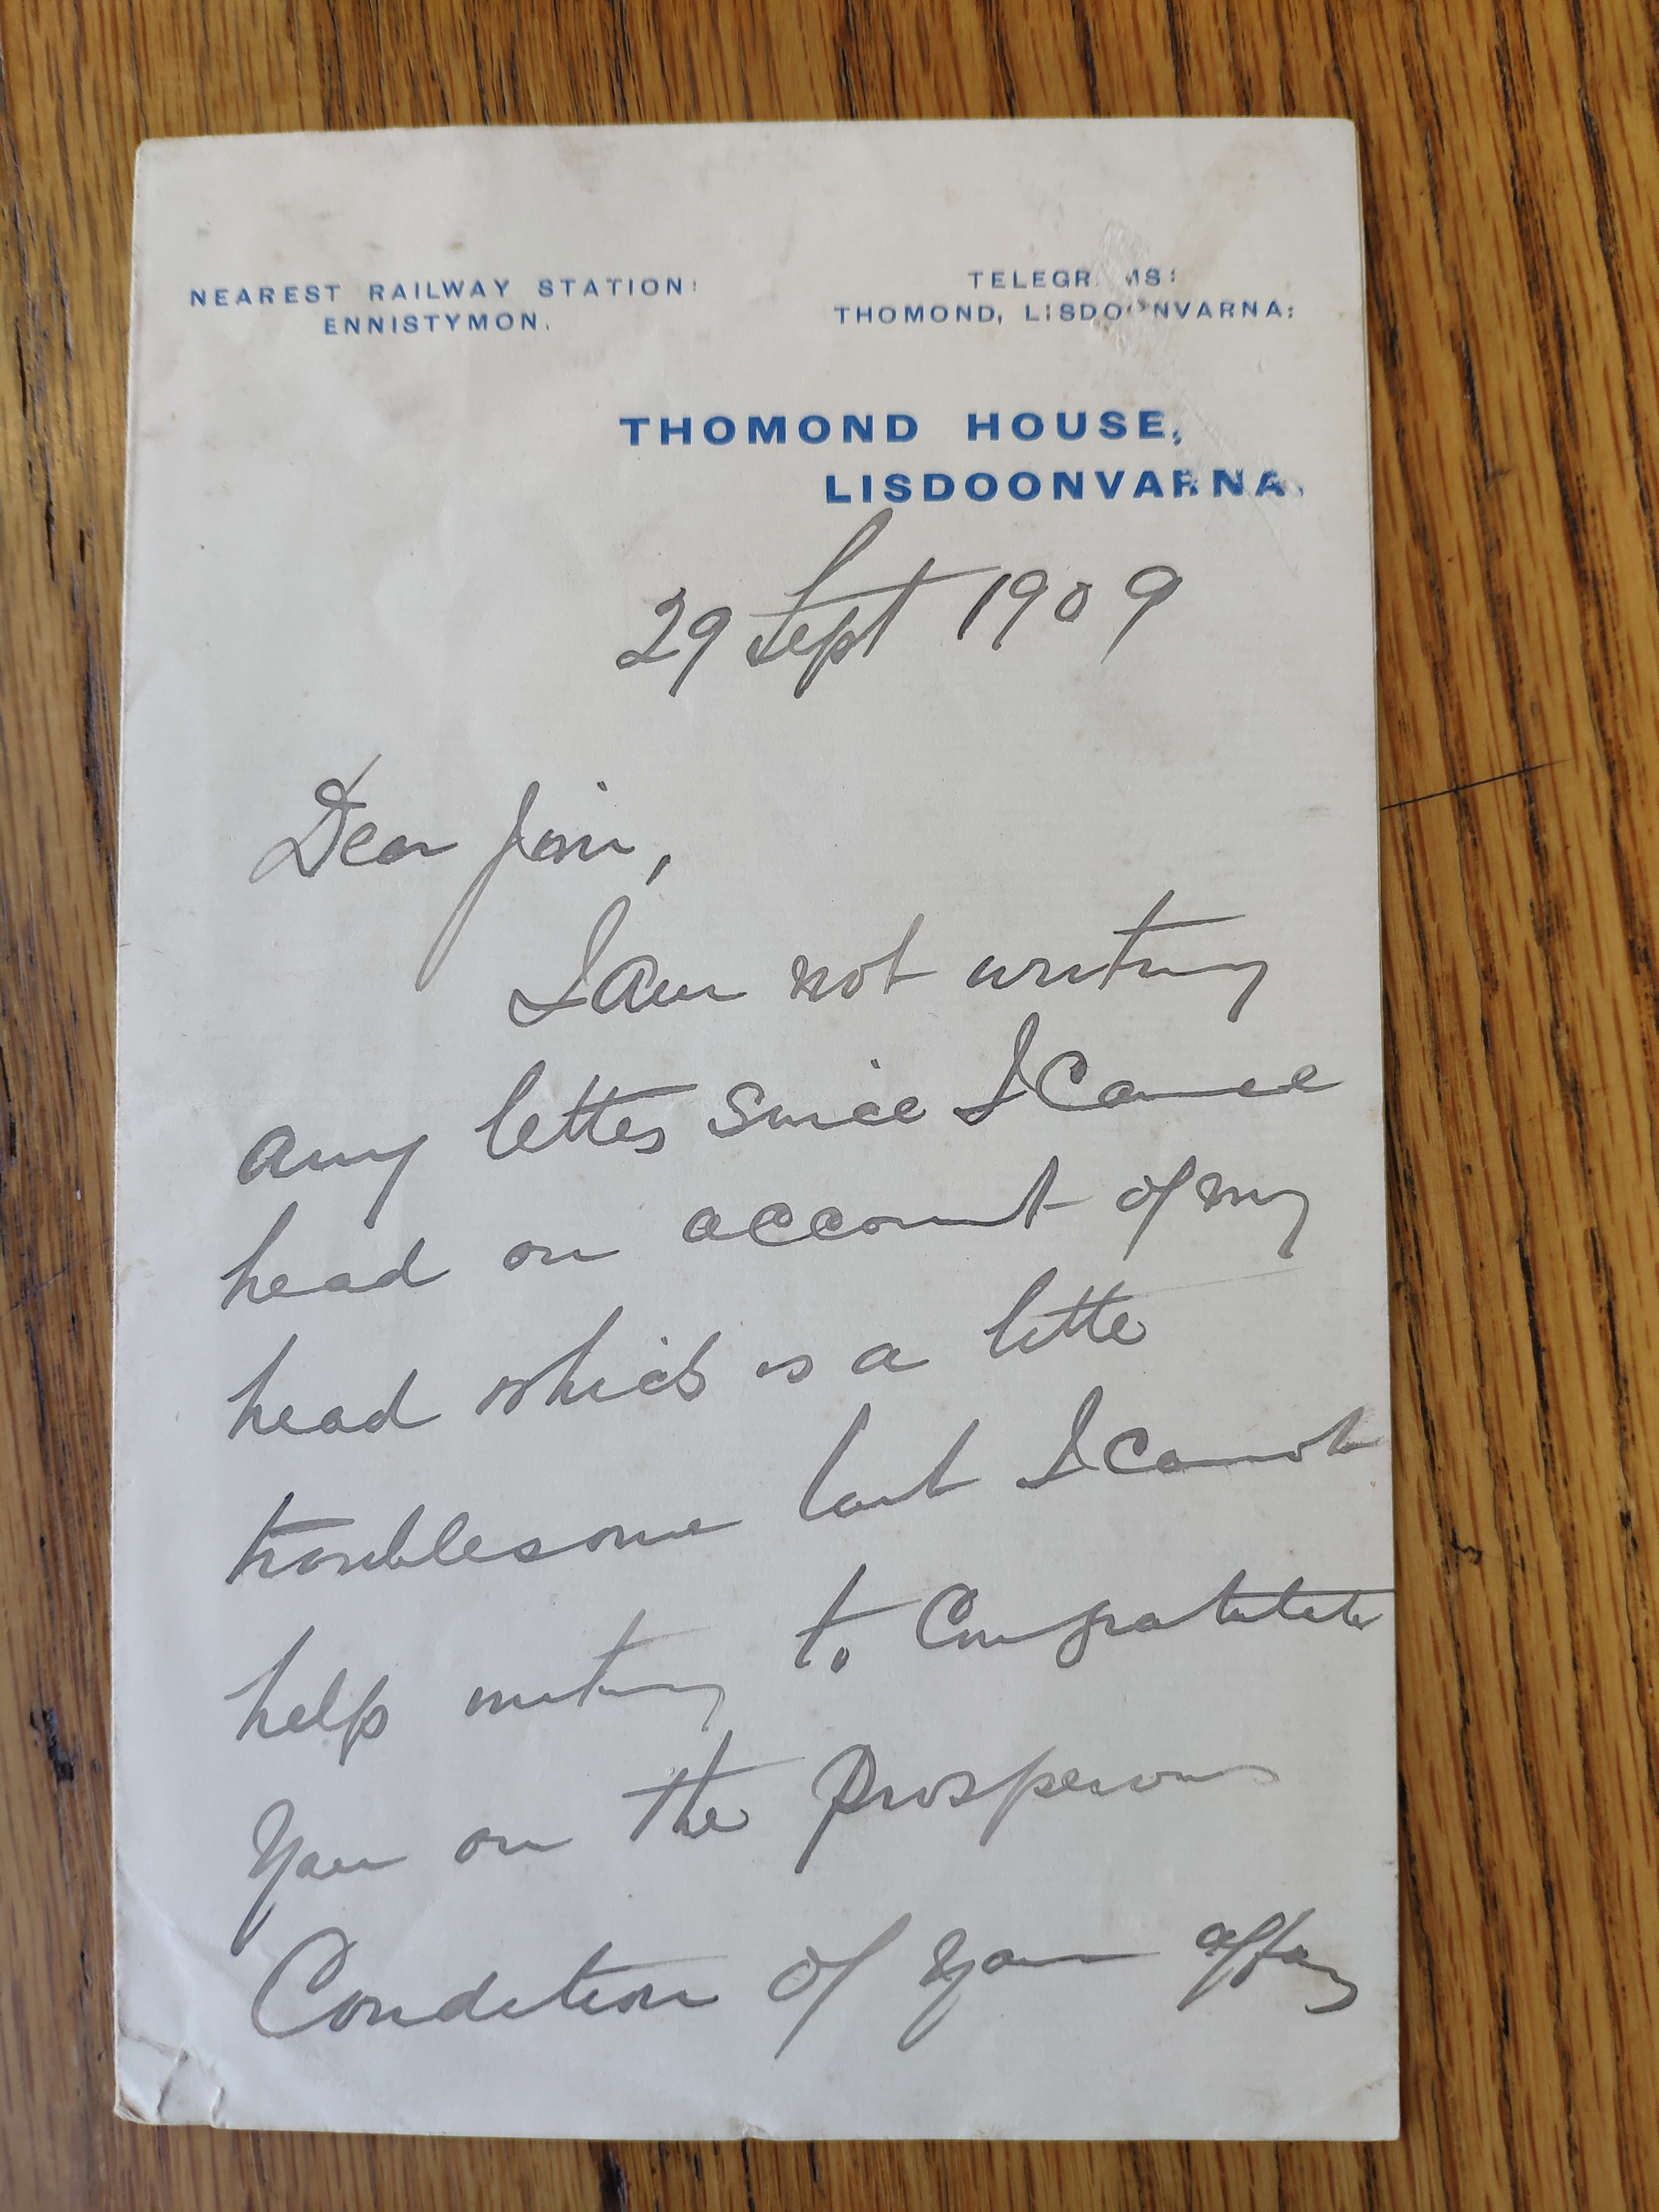 NEAREST RAILWAY STATION:
ENNISTYMON.
TELEGRAMS:
THOMOND, LISDOONVARNA:
THOMOND HOUSE,
LISDOONVARNA.
29 Sept 1909
Dear Jim,
I am not writing
any letters since I Came
head on account of my
head which is a little
troublesome but I cannot
help writing to Congratulate
You on the Prosperous
Condition of Your